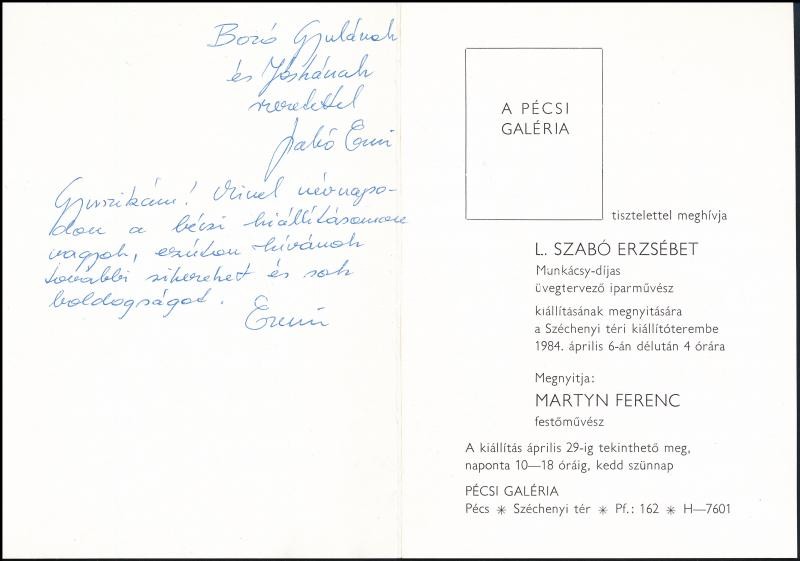 Bozó Gyulának
és Jóskának
szeretettel
Szabó Erzsi
Gyuszikám! Mivel névnapo-
don a bécsi kiállításomon
vagyok, ezúton kívánok
további sikereket és sok
boldogságot.
Erzsi
A PÉCSI
GALÉRIA
tisztelettel meghívja
L. SZABÓ ERZSÉBET
Munkácsy-díjas
üvegtervező iparművész
kiállításának megnyitására
a Széchenyi téri kiállítóterembe
1984. április 6-án délután 4 órára
Megnyitja:
MARTYN FERENC
festőművész
A kiállítás április 29-ig tekinthető meg,
naponta 10—18 óráig, kedd szünnap
PÉCSI GALÉRIA
Pécs ✳ Széchenyi tér ✳ Pf.: 162 ✳ H—7601